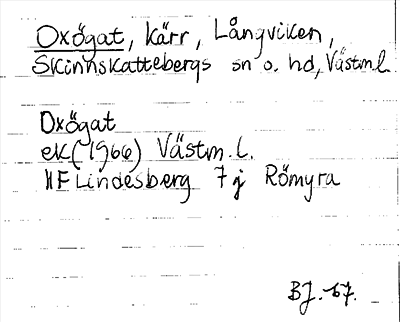 Oxögat, kärr, Långviken,
Skinnskattebergs sn o. hd, Västml.
Oxögat
ek (1966) Västm.l.
11F Lindesberg 7j Römyra
BJ. 67.